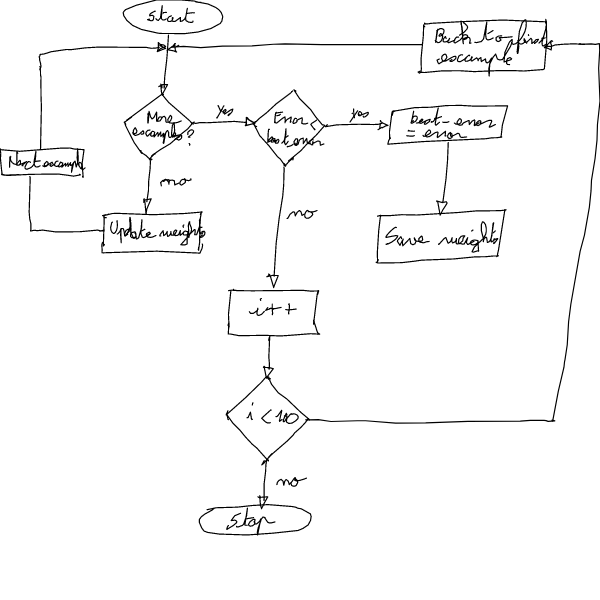 Start
Back to first
example
More
examples?
yes
Error <
best error
yes
best-error
= error
Next example
no
Update weights
no
Save weights
i++
i < 100
no
Stop